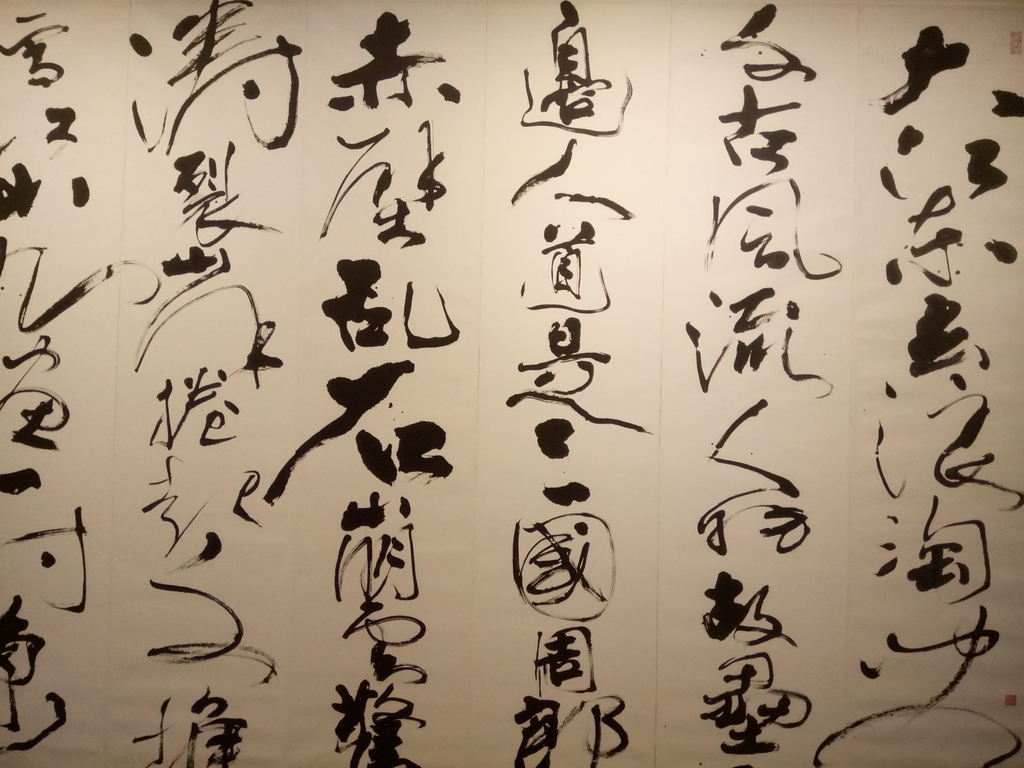 大江东去浪淘
古風流人物故壘
邊人道是三國周郎
赤壁乱石崩雲驚
濤裂岸捲起
雪江山如畫一时